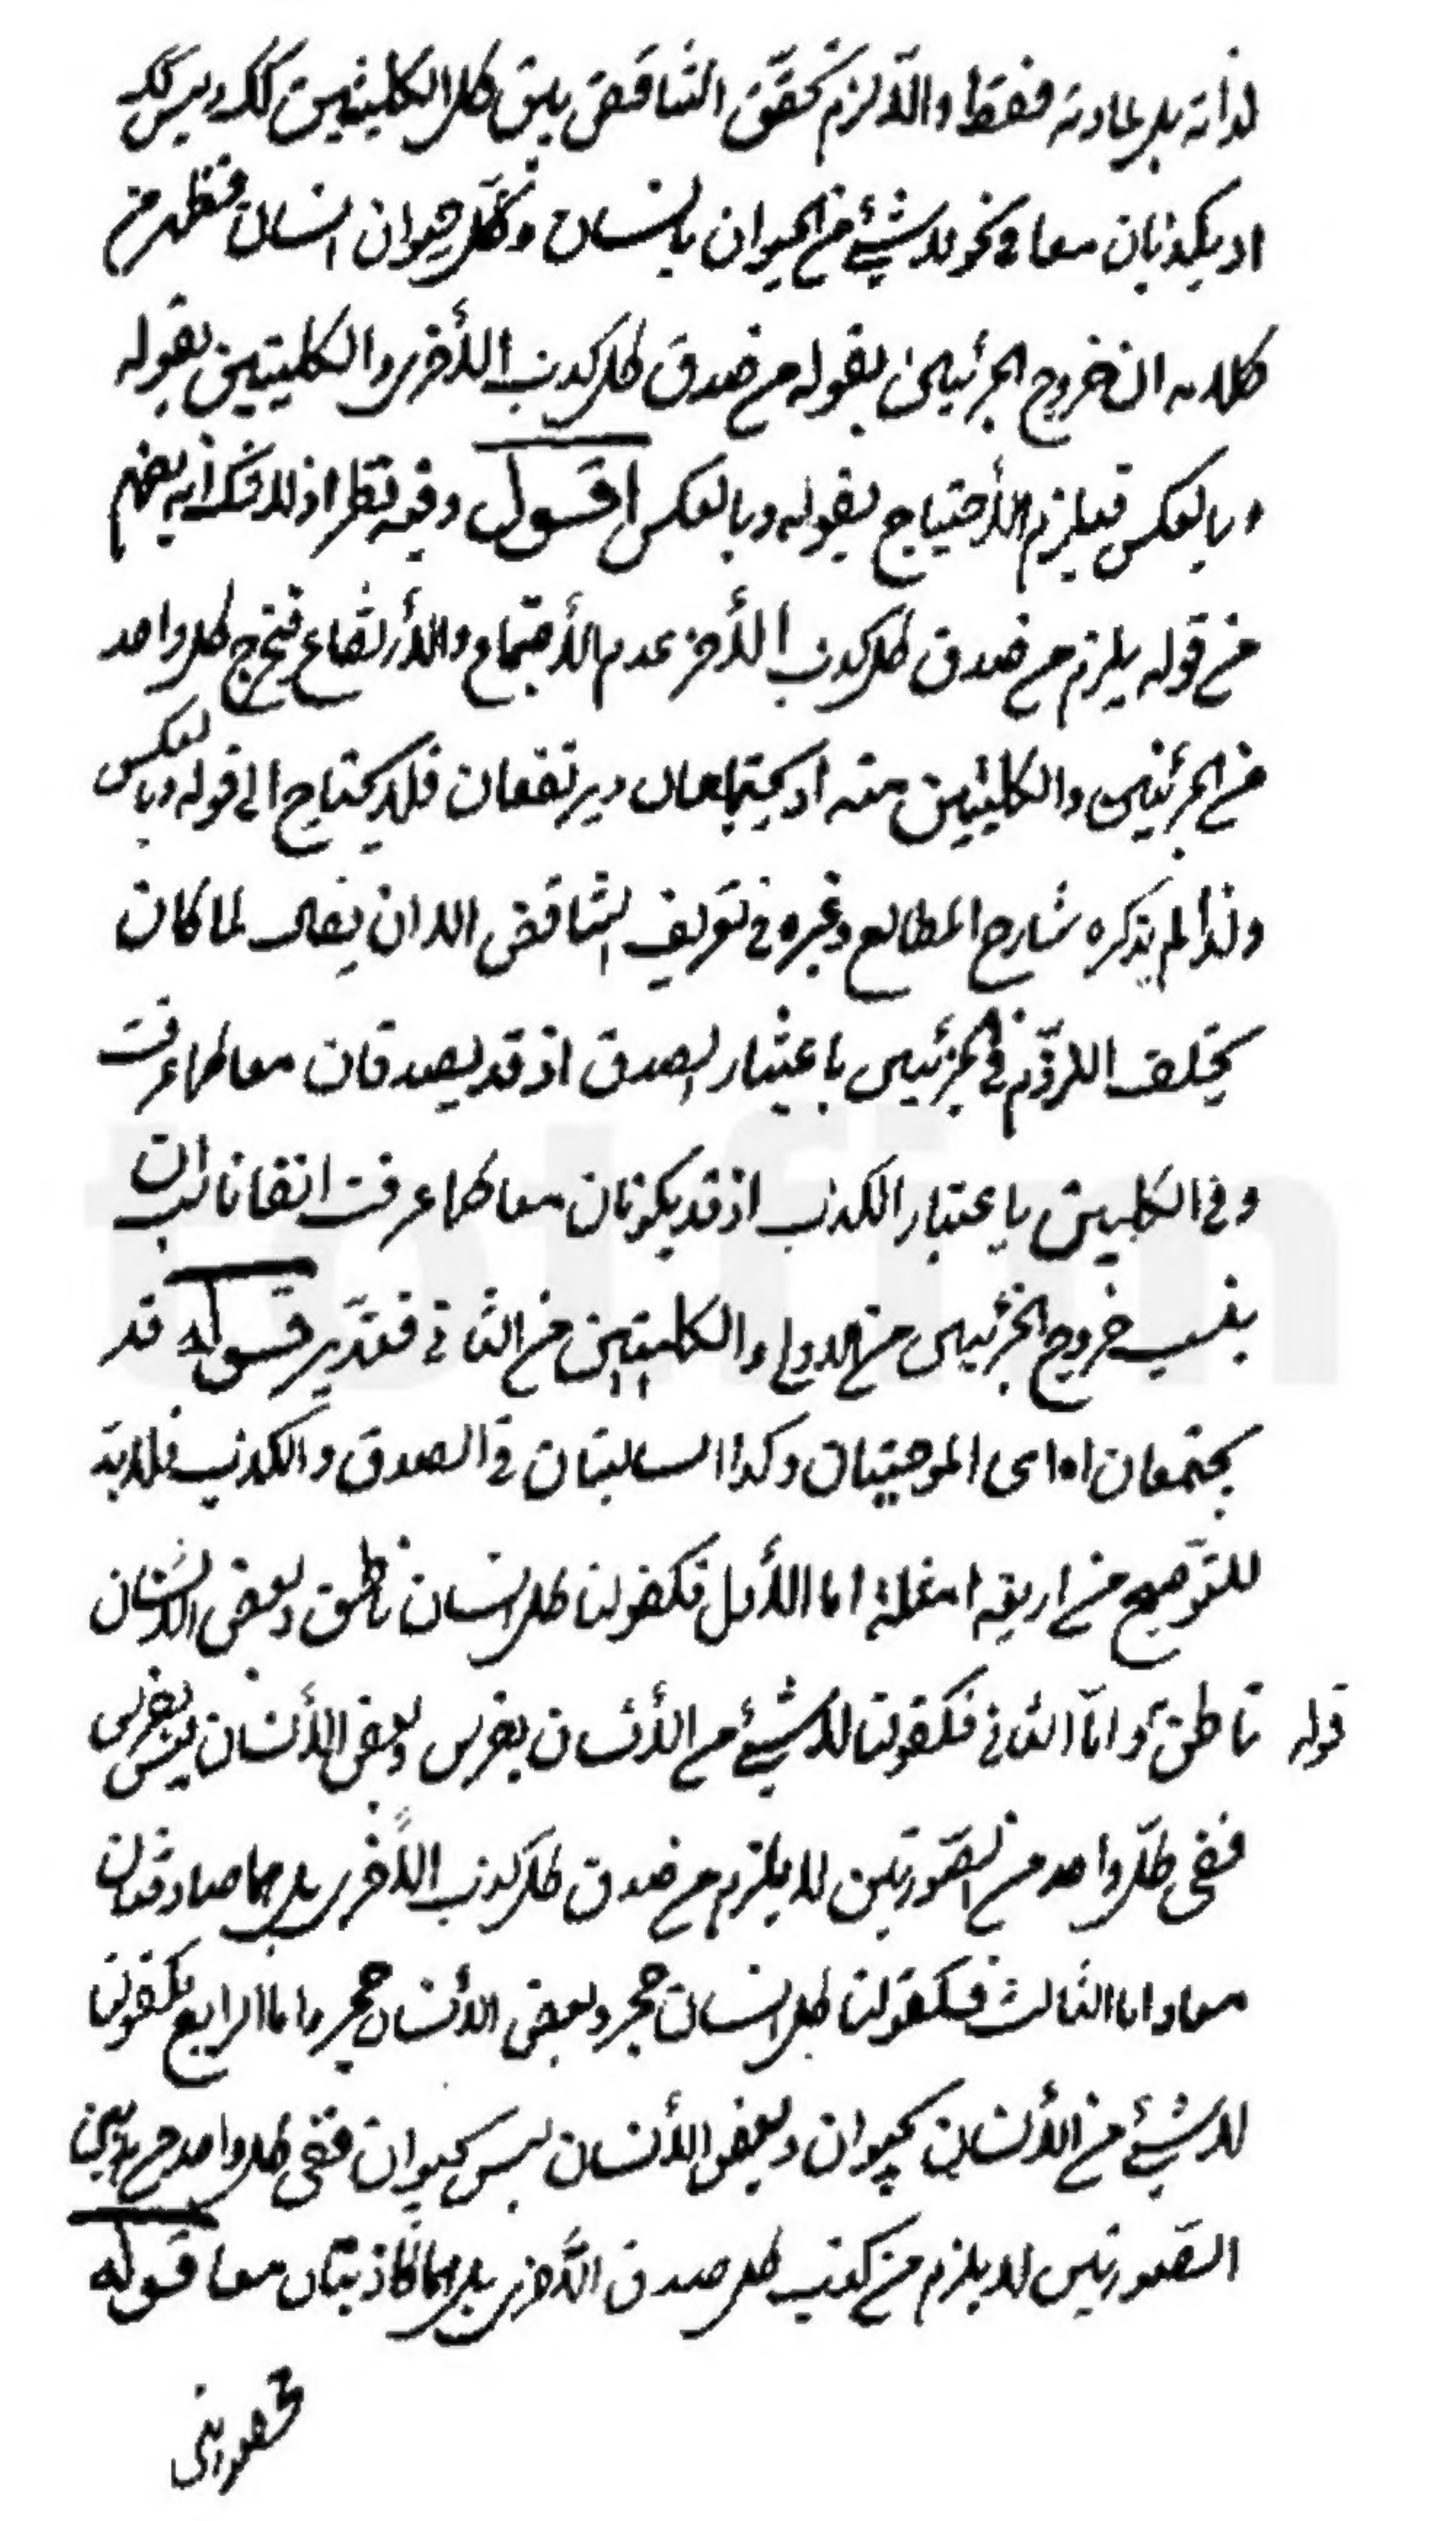 لذاته بل لمادته فقط والا لزم تحقق التناقض بين كل الكليتين كك وليس كك
اذ يكذبان معا في نحو لا شيئ من الحيوان بانسان وكل حيوان انسان فظهر من
كلامه ان خروج الجزئيين بقوله من صدق كل كذب الأخرى والكليتين بقوله
وبالعكس فيلزم الأحتياج بقوله وبالعكس اقول وفيه نظر اذ لا شك انه يفهم
من قوله يلزم من صدق كل كذب الأخرى عدم الأجتماع والأرتفاع فيخرج كل واحد
من الجزئيين والكليتين منه اذ يجتمعان ويرتفعان فلا يحتاج الى قوله وبالعكس
ولذا لم يذكره شارح المطالع وغيره في تعريف التناقض الا ان يقال لما كان
يختلف اللزوم في الجزئيين باعتبار الصدق اذ قد يصدقان معا كما عرفت
وفي الكليتين باعتبار الكذب اذ قد يكونان معا كما عرفت اتفاقا ناسب ان
ينسب خروج الجزئيين من الاول والكليتين من الثاني فتدبر قوله قد
يجتمعان اه اى الموجبتان وكذا السالبتان في الصدق والكذب فلابد
للتوضيح من اربعة امثلة اما الأول فكقولنا كل انسان ناطق وبعض الانسان
قوله ناطق و اما الثاني فكقولنا لا شيئ من الأنسان بفرس وبعض الأنسان ليس بفرس
ففى كل واحد من الصورتين لا يلزم من صدق كل كذب الأخرى بل هما صادقتان
معا واما الثالث فكقولنا كل انسان حجر وبعض الأنسان حجر واما الرابع فكقولنا
لا شيئ من الأنسان بحيوان وبعض الأنسان ليس بحيوان ففى كل واحد من هاتين
الصورتين لا يلزم من كذب كل صدق الأخرى بل هما كاذبتان معا قوله